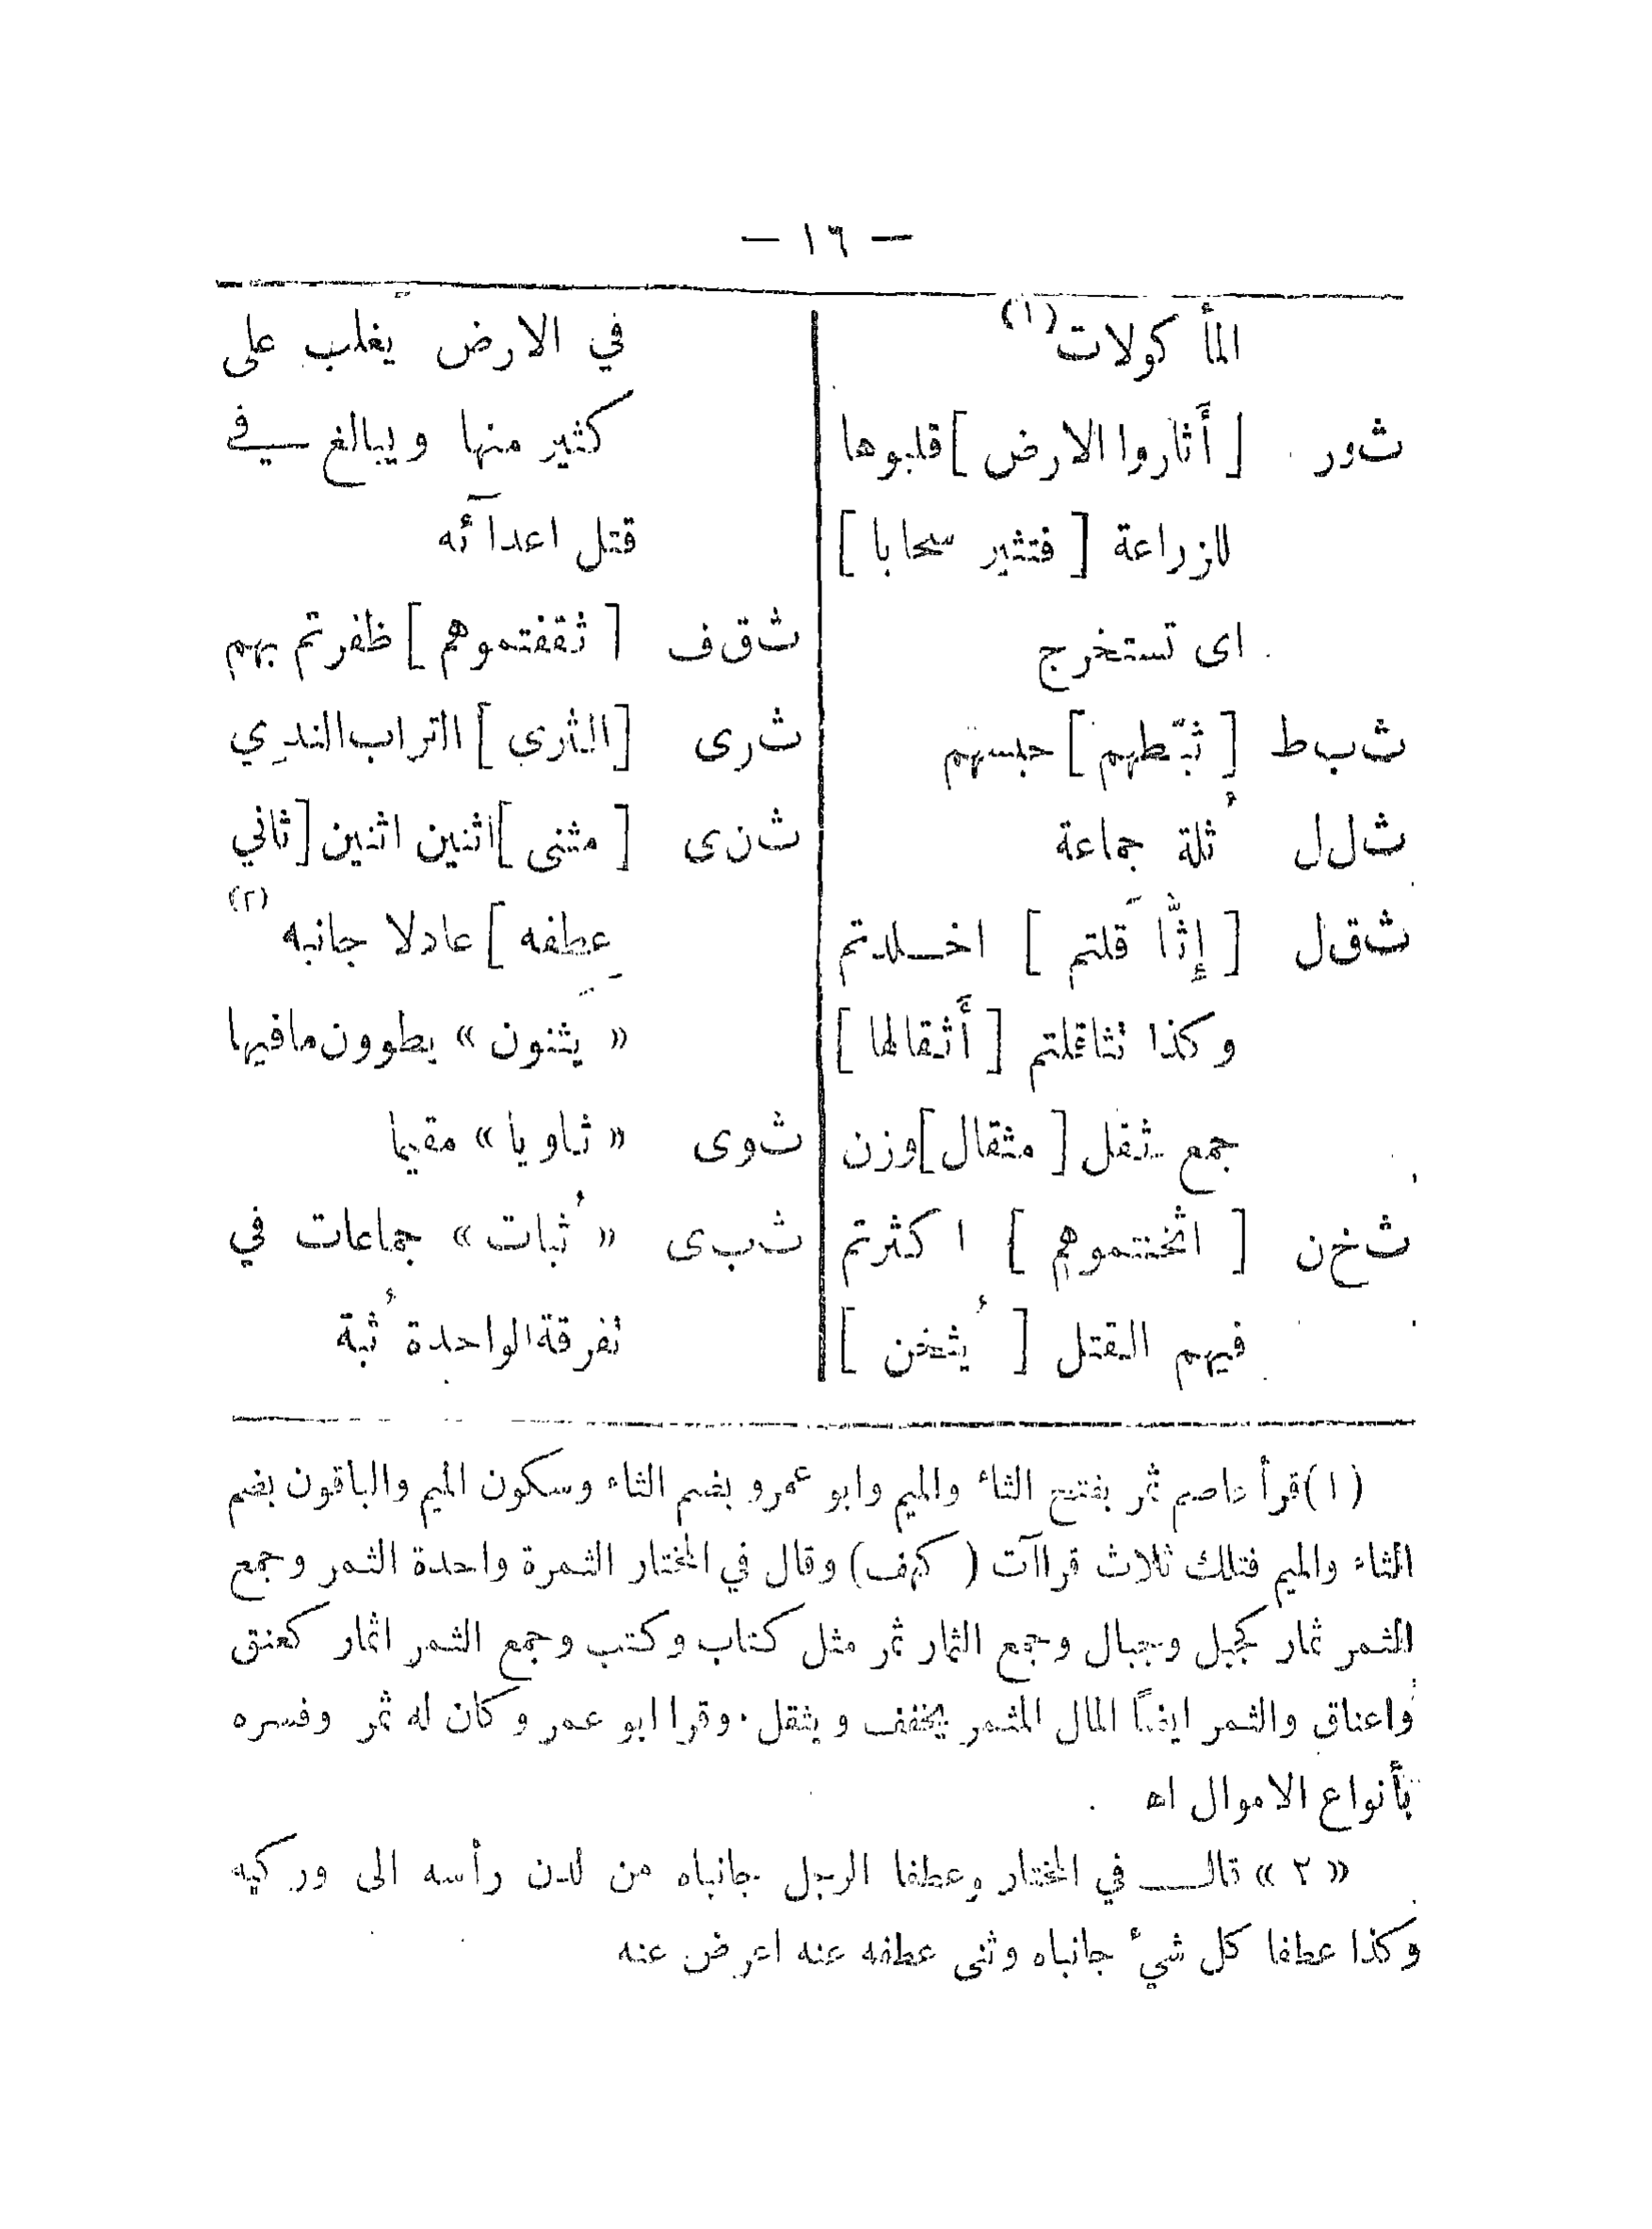 — ١٦ —
المأكولات (١)
ثور [أَثاروا الارض] قلبوها
للزراعة [فتثير سحابا]
اى تستخرج
ثبط [ثبّطهم] حبسهم
ثلل ُثلة جماعة
ثقل [إِثَّاقَلتم] اخلدتم
وكذا تثاقلتم [أَثقالها]
جمع ثقل [مثقال] وزن
ثخن [اثخنتموهم] اكثرتم
فيهم القتل [يُثخن]
في الارض يغلب على
كثير منها ويبالغ في
قتل اعدآئه
ثقف [ثقفتموهم] ظفرتم بهم
ثرى [الثرى] التراب الندِي
ثنى [مثنى] اثنين اثنين [ثاني
عِطفه] عادلا جانبه (٢)
« يَثنون » يطوون مافيها
ثوى « ثاويا » مقيما
ثبى « ثُبات » جماعات في
تفرقة الواحدة ثُبة
(١) قرأ عاصم ثمر بفتح الثاء والميم وابو عمرو بضم الثاء وسكون الميم والباقون بضم
الثاء والميم فتلك ثلاث قراآت (كهف) وقال في المختار الثمرة واحدة الثمر وجمع
الثمر ثمار كجبل وجبال وجمع الثمار ثمر مثل كتاب وكتب وجمع الثمر اثمار كعنق
واعناق والثمر ايضاً المال المثمر يخفف ويثقل . وقرا ابو عمر وكان له ثمر وفسره
بأنواع الاموال اه
« ٢ » قال في المختار وعطفا الرجل جانباه من لدن رأسه الى وركيه
وكذا عطفا كل شيء جانباه وثنى عطفه عنه اعرض عنه